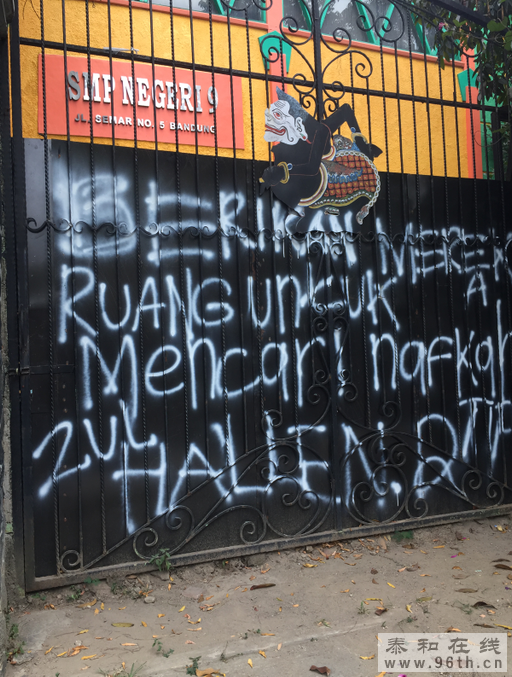 SMP NEGERI 9
JL. SEMAR NO. 5 BANDUNG
BERIKAN MEREKA
RUANG UnTUK
Mencari nafkah
ZUL HALIEN.
泰和在线
www.96th.cn